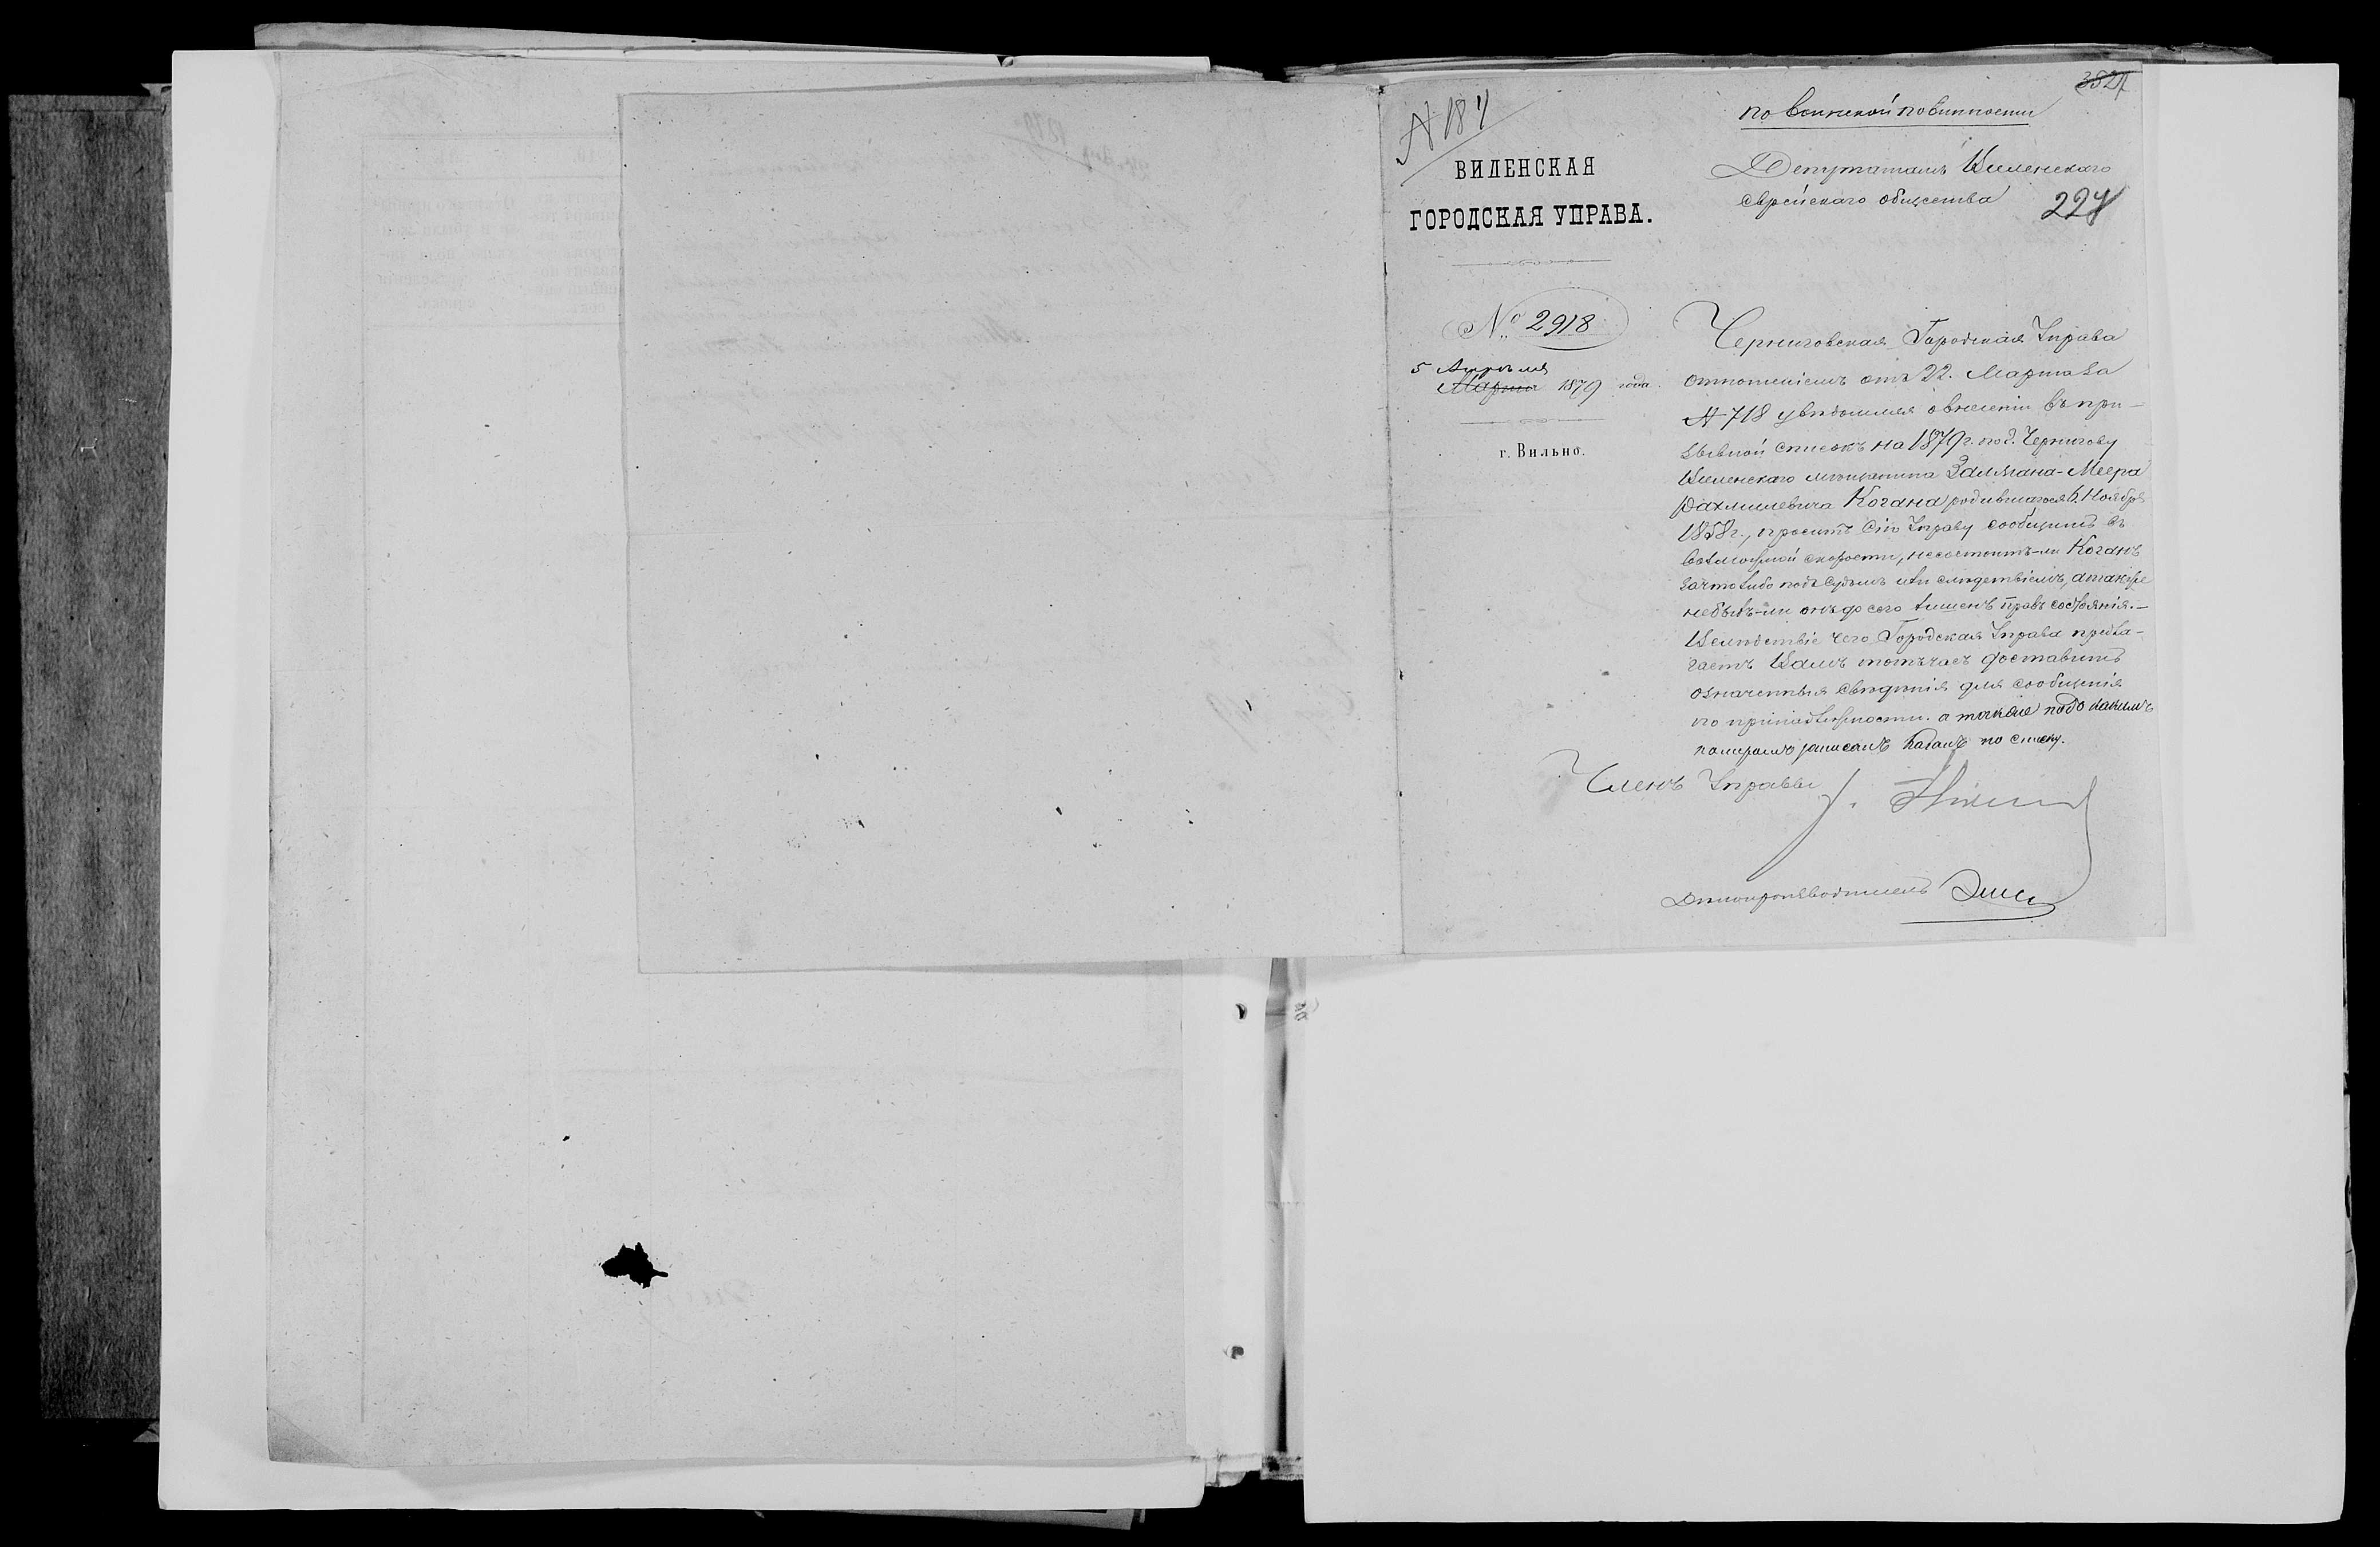 по воинской повинности
№ 184
ВИЛЕНСКАЯ
ГОРОДСКАЯ УПРАВА.
Депутатамъ Виленскаго
Еврейскаго общества
224
№ 2918
5 Апрѣля
Марта 1879 года.
г. Вильно.
Черниговская Городская Управа
отношеніемъ отъ 22. Марта за
№ 718 увѣдомляя о внесеніи въ при-
зывной списокъ на 1879 г. по г. Чернигову
Виленскаго мѣщанина Залмана-Меера
Рахмилевича Когана, родившагося 6. Ноября
1858 г., проситъ сію Управу сообщить въ
возможной скорости, не состоитъ-ли Коганъ
за что либо подъ судомъ или слѣдствіемъ, а также
не былъ-ли онъ до сего лишенъ правъ состоянія.—
Вслѣдствіе чего Городская Управа предла-
гаетъ Вамъ тотъ часъ доставить
означенныя свѣдѣнія для сообщенія
по принадлежности. а также подъ какимъ
номеромъ записанъ Каганъ по списку.
Членъ Управы
Дѣлопроизводитель